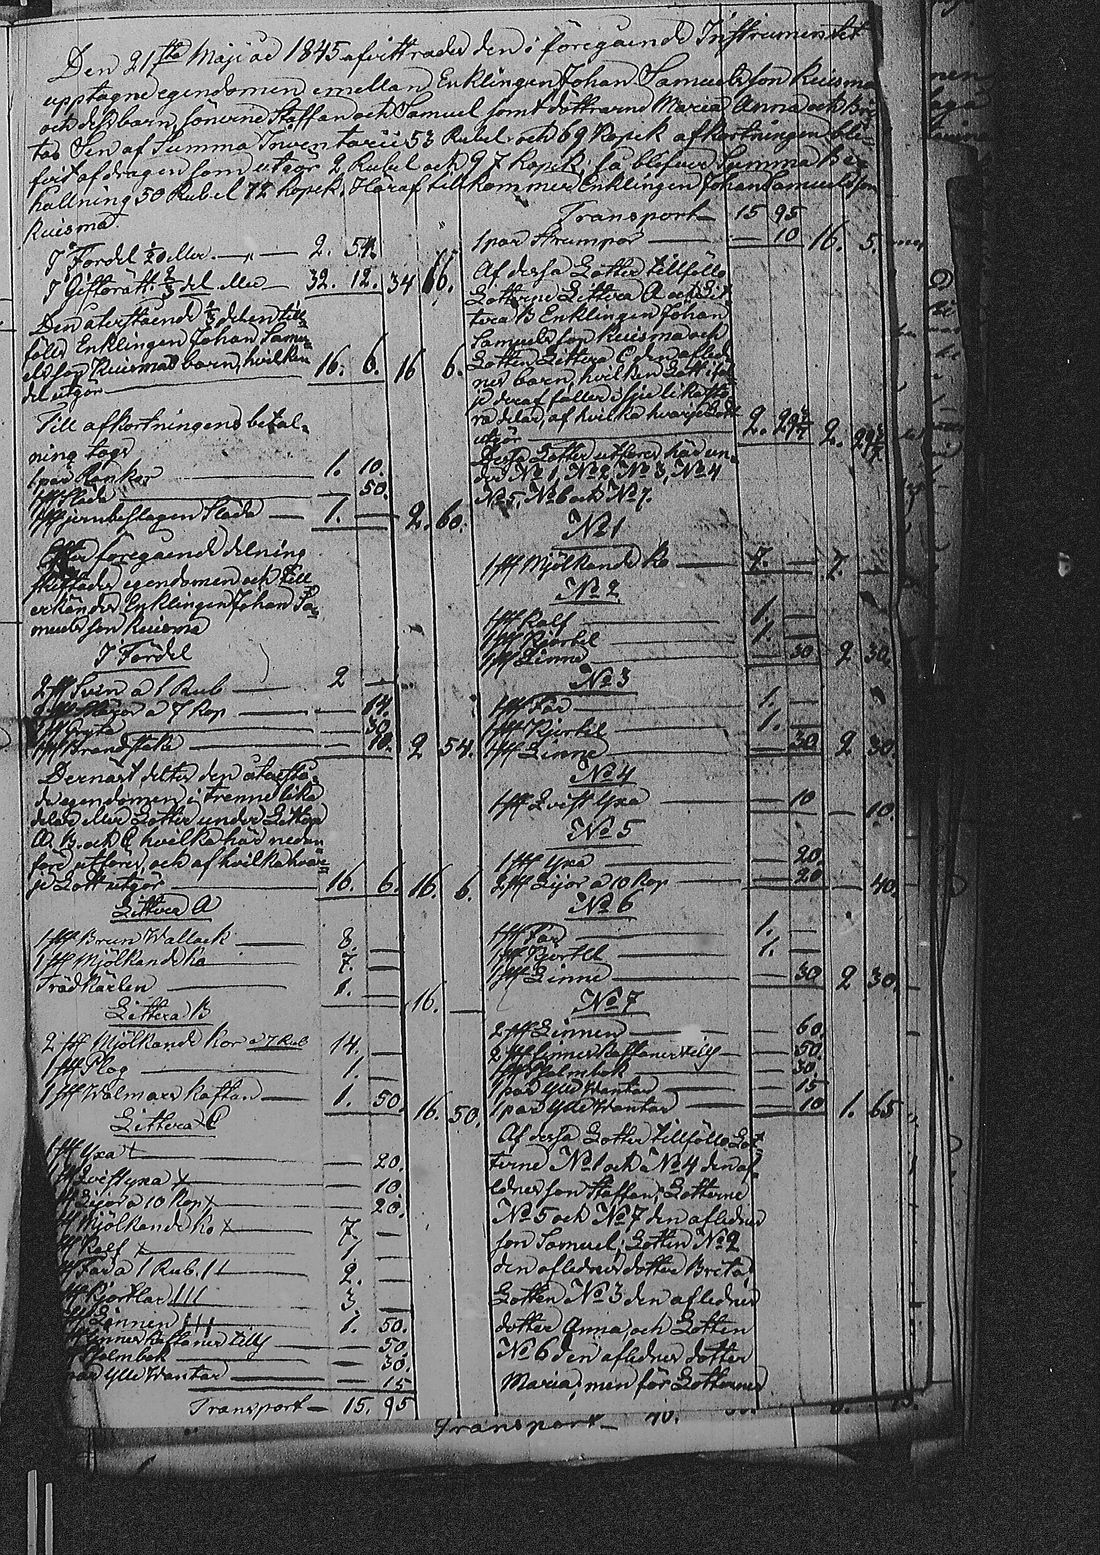 Den 21sta Maji ad 1845 afvittrades den i föregående Instrumentet
upptagne egendomen emellan Enklingen Johan Samuelsson Ruisma
och dess barn, sönerne Staffan och Samuel samt döttrarne Maria Anna och Bri-
ta. Sen af Summa Inventarii 53 Rubel och 69 Kopek afkortningen bli-
fvit afdragen som utgör 2 Rubel och 97 Kopek, så blefver Summa Be-
hållning 50 Rubel 72 Kopek. Häraf tillkommer Enklingen Johan Samuelsson
Ruisma.
I Fördel 1/20 eller 2. 54.
I Giftorätt 2/3 del eller 32. 12. 34 66.
Den återstående 1/3 delen till-
föll Enklingen Johan Samu-
elsson Ruismas barn, hvilken
del utgör 16. 6. 16 6.
Till afkortningens betal-
ning togs
1 par Rankor 1. 10.
1 st Släda 50.
1 st jernbeslagen Släda 1. 2. 60.
föregående delning
skiftades egendomen och till-
erkändes Enklingen Johan Sa-
muelsson Ruisma
I Fördel
2 st Svin a 1 Rub 2
2 st Lijor a 7 Kop 14.
1 st Gryta 30.
1 st Brandstake 10. 2 54.
Dernäst deltes den återstå-
de egendomen i trenne lika
delar eller Lotter under Littera
A. B. och C hvilka här nedan
före utföres, och af hvilka hvar-
je Lott utgör 16. 6. 16. 6.
Littera A
1 st Brun Wallack 8.
1 st Mjölkande ko 7.
Trädkärlen 1. 16.
Littera B
2 st Mjölkande kor a 7 Rub 14.
1 st Plog 1.
1 st Walmars Kaftan 1. 50. 16. 50.
Littera C
1 st Yxa 20.
1 st Qvistyxa 10.
Lijor a 10 Kop 20.
Mjölkande ko 7
st Kalf 1
Får a 1 Rub. 2.
st Kjortlar 3
st Linnen 1. 50.
50.
Halmbok 30.
par Ylle Wantar 15
Transport 15. 95
Transport 15 95
1 par Strumpor 10 16. 5.
Af dessa Lotter tillföllo
Lotterne Littera A och Lit-
tera B Enklingen Johan
Samuelsson Ruisma och
Lotten Littera C den afled-
nes barn, hvilken Lott i sju
deraf faller i sju lika sto-
ra delar, af hvilka hvarje Lott
utgör 2. 29 2. 29
Desse Lotter utföres här un-
der No 1, No 2, No 3, No 4
No 5, No 6 och No 7.
No 1
1 st Mjölkande Ko 7. 7.
No 2
1 st Kalf 1.
1 st Kjortel 1.
1 st Linne 30 2 30.
No 3
1 st Får 1.
1 st Kjortel 1.
1 st Linne 30 2 30.
No 4
1 st Qvist Yxa 10 10.
No 5
1 st Yxa 20
2 st Lijor a 10 Kop 20 40.
No 6
1 st Får 1.
1 st Kjortel 1.
1 st Linne 30 2 30.
No 7
2 st Linnen 60.
50.
1 st Halmbok 30.
1 par Ylle Wantar 15
1 par Ylle Wantar 10 1. 65
Af dessa Lotter tillföllo Lot-
terne No 1 och No 4 den af-
lednes son Staffan; Lotterne
No 5 och No 7 den aflednes
son Samuel; Lotten No 2
den aflednes dotter Breta,
Lotten No 3 den aflednes
dotter Anna, och Lotten
No 6 den aflednes dotter
Maria; men för Lotterne
Transport